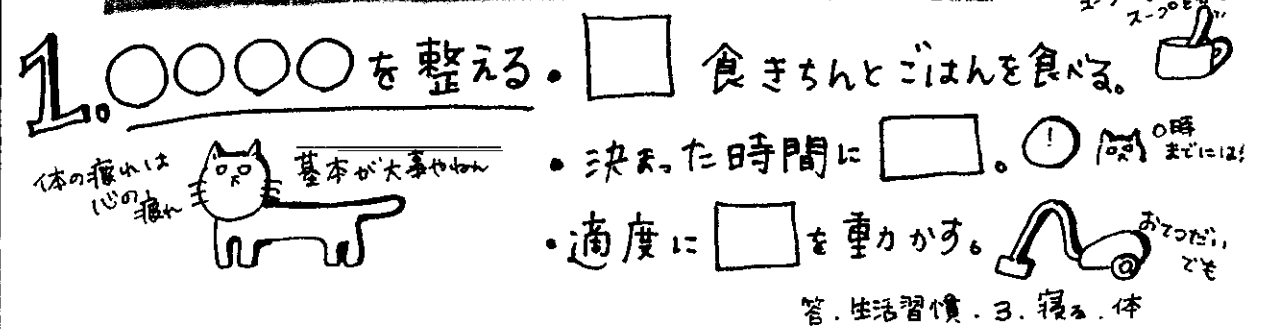 スープを
1.○○○○を整える
・□食きちんとごはんを食べる。
体の疲れは
心の疲れ
基本が大事やねん
・決まった時間に□。
!
○時
までには!
・適度に□を動かす。
おてつだい
でも
答.生活習慣.3.寝る.体